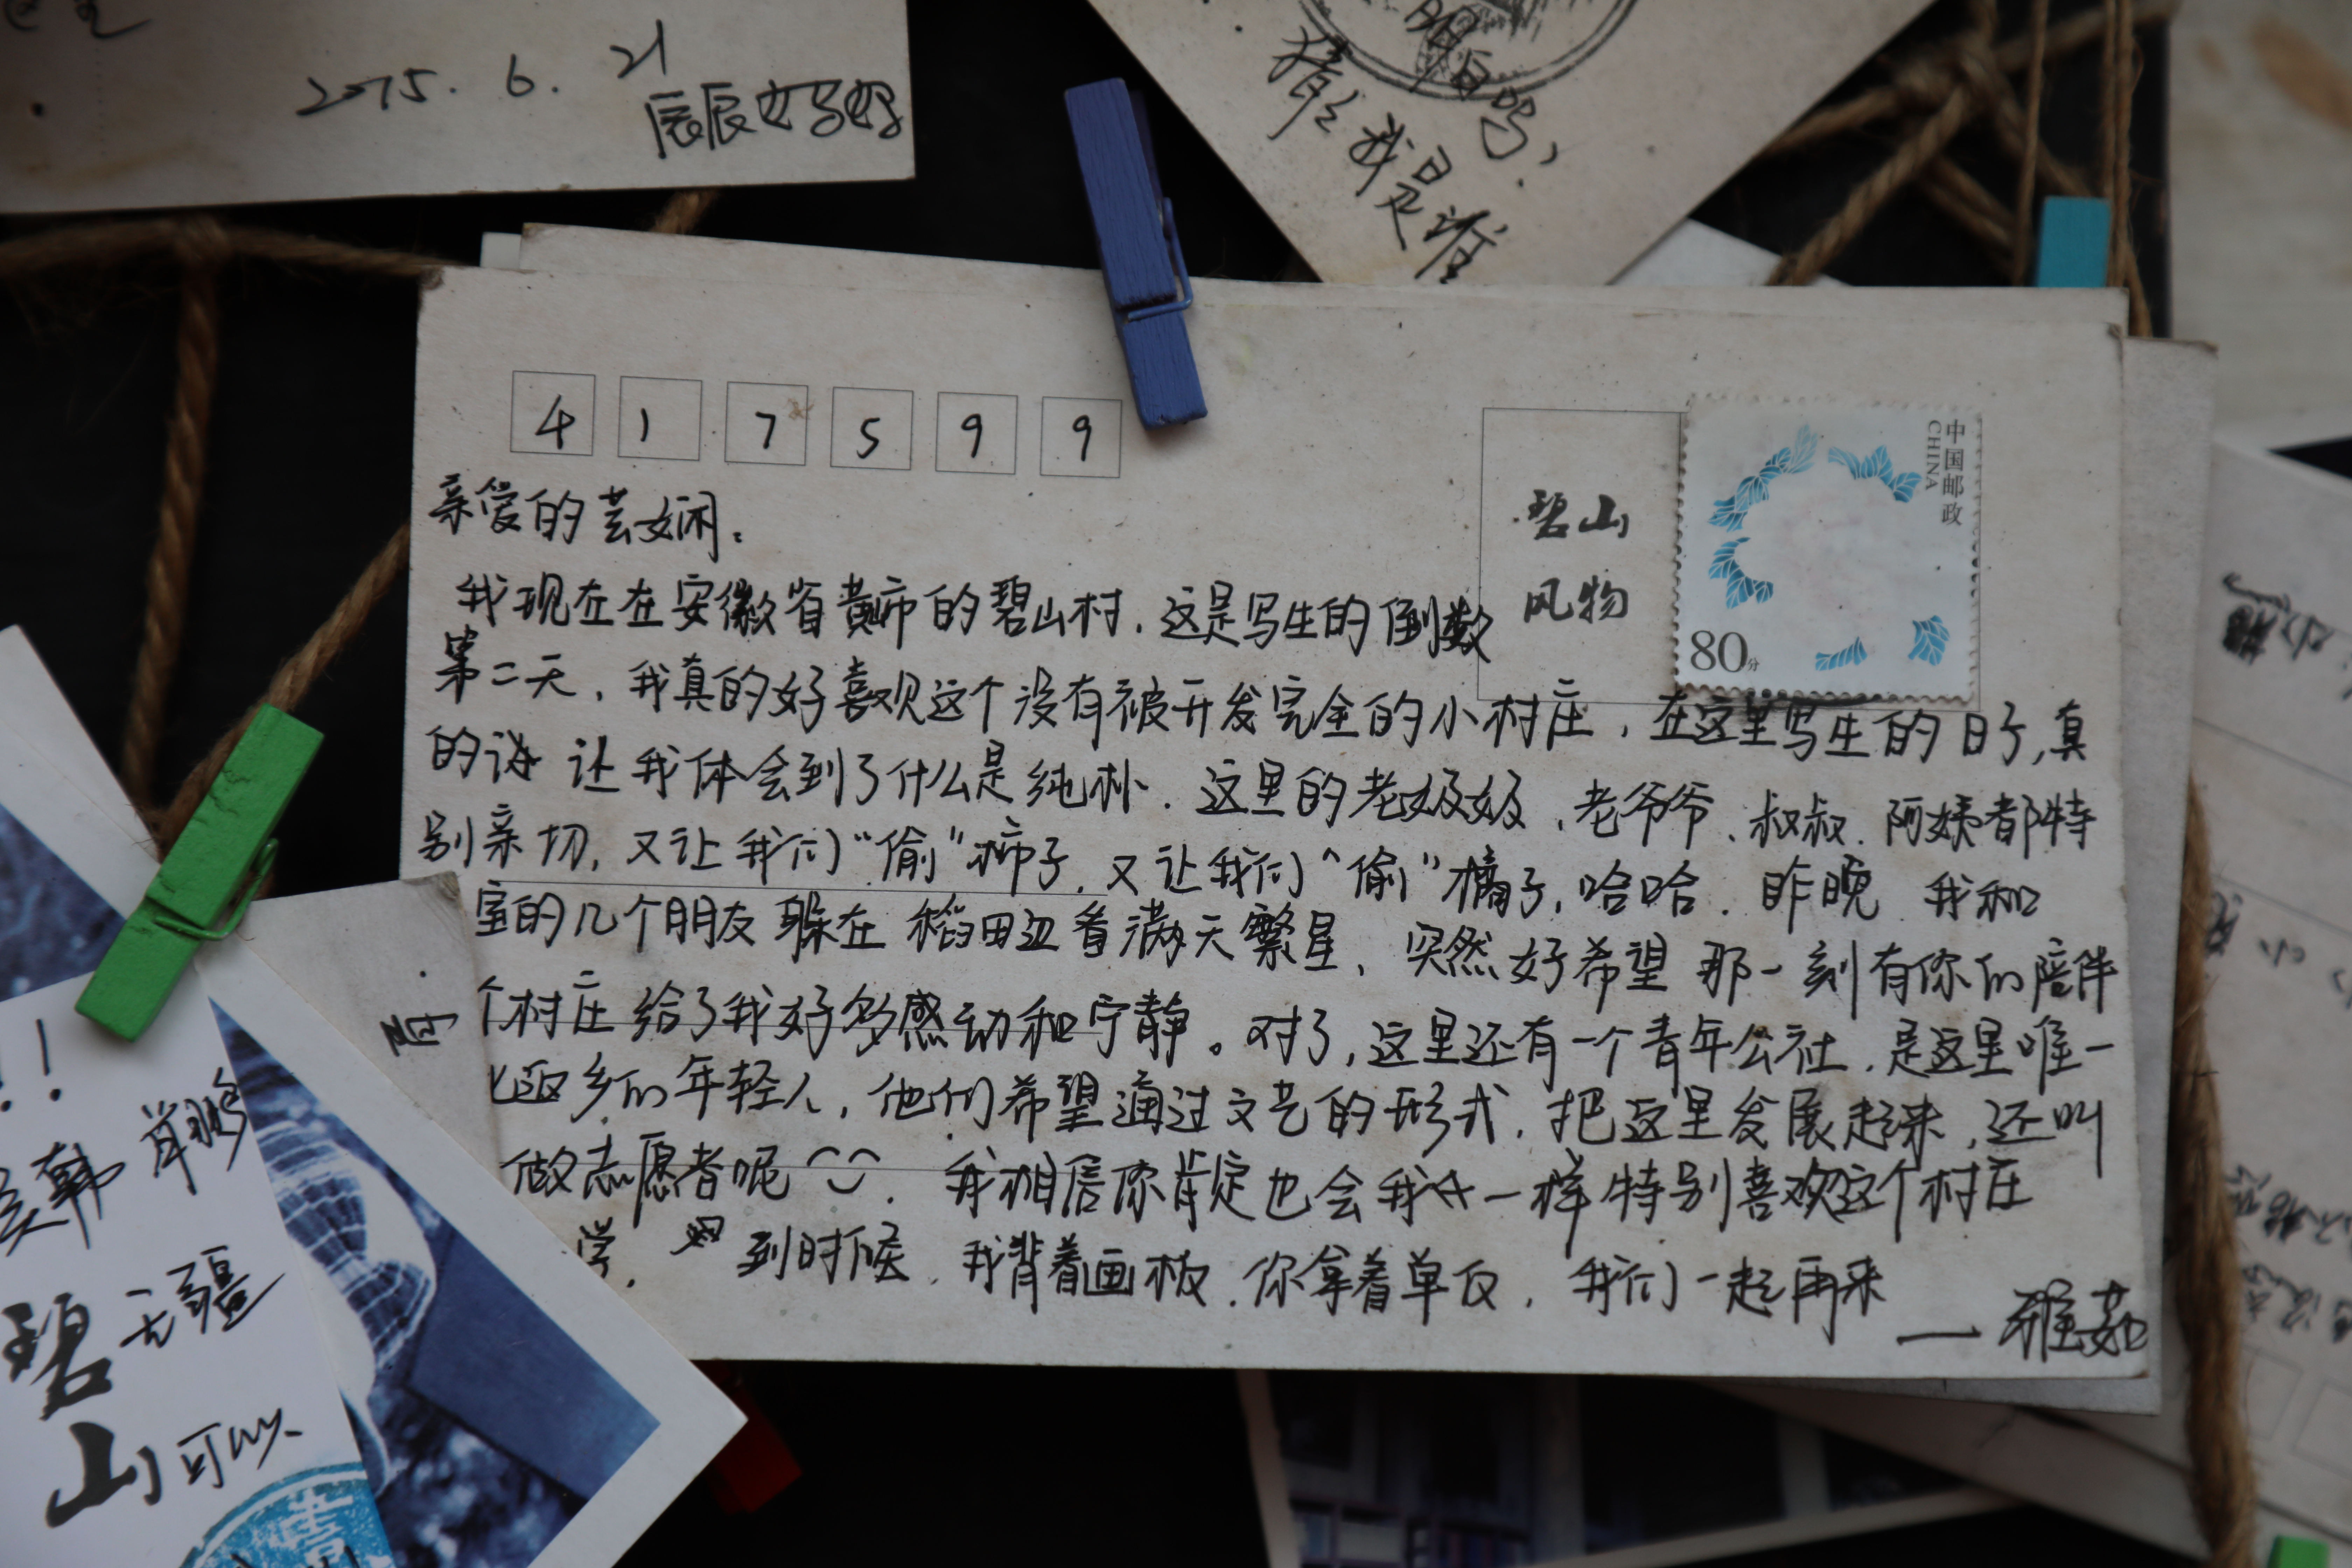 2015. 6. 21
辰辰好好
明白吗,
猜猜我是谁
4 1 7 5 9 9
中国邮政
CHINA
80分
碧山
风物
亲爱的芸娴:
我现在在安徽省黄市的碧山村,这是写生的倒数
第二天,我真的好喜欢这个没有被开发完全的小村庄,在这里写生的日子,真
的让我体会到了什么是纯朴.这里的老奶奶,老爷爷、叔叔、阿姨都特
别亲切,又让我们“偷”柿子,又让我们“偷”橘子,哈哈.昨晚 我和
室的几个朋友躲在稻田边看满天繁星,突然好希望那一刻有你的陪伴
个村庄给了我好多感动和宁静。对了,这里还有一个青年公社,是这里唯一
返乡的年轻人,他们希望通过文艺的形式,把这里发展起来,还叫
做志愿者呢.我相信你肯定也会我一样特别喜欢这个村庄
学, 到时候,我背着画板,你拿着单反,我们一起再来
—雅茹
!!
韩
碧
无疆
山
可以